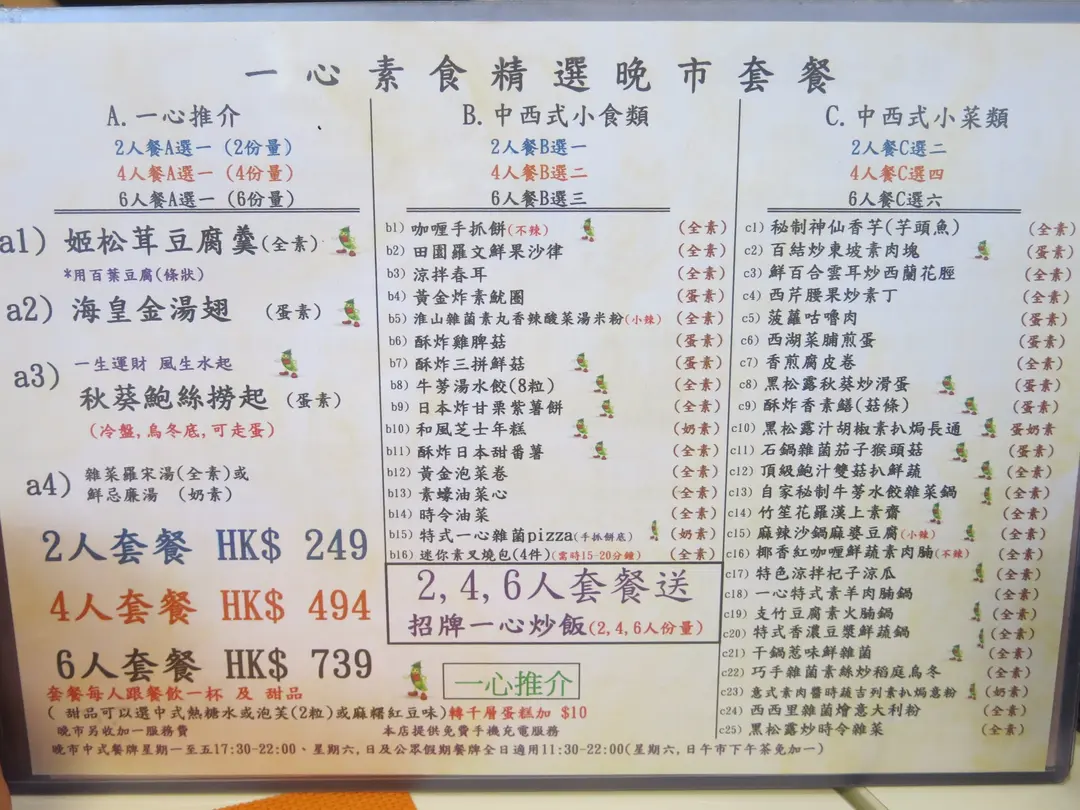 一心素食精選晚市套餐
A.一心推介
2人餐A選一 (2份量)
4人餐A選一 (4份量)
6人餐A選一 (6份量)
a1) 姬松茸豆腐羹(全素)
*用百葉豆腐(條狀)
a2) 海皇金湯翅 (蛋素)
一生運財 風生水起
a3) 秋葵鮑絲撈起 (蛋素)
(冷盤,烏冬底,可走蛋)
a4) 雜菜羅宋湯(全素)或
鮮忌廉湯 (奶素)
2人套餐 HK$ 249
4人套餐 HK$ 494
6人套餐 HK$ 739
B.中西式小食類
2人餐B選一
4人餐B選二
6人餐B選三
b1) 咖喱手抓餅(不辣) (全素)
b2) 田園羅文鮮果沙律 (全素)
b3) 涼拌春耳 (全素)
b4) 黃金炸素魷圈 (蛋素)
b5) 淮山雜菌素丸香辣酸菜湯米粉(小辣) (全素)
b6) 酥炸雞脾菇 (蛋素)
b7) 酥炸三拼鮮菇 (蛋素)
b8) 牛蒡湯水餃(8粒) (全素)
b9) 日本炸甘栗紫薯餅 (全素)
b10) 和風芝士年糕 (奶素)
b11) 酥炸日本甜番薯 (全素)
b12) 黃金泡菜卷 (全素)
b13) 素蠔油菜心 (全素)
b14) 時令油菜 (全素)
b15) 特式一心雜菌pizza(手抓餅底) (奶素)
b16) 迷你素叉燒包(4件)(需時15-20分鐘) (全素)
2,4,6人套餐送
招牌一心炒飯(2,4,6人份量)
一心推介
C.中西式小菜類
2人餐C選二
4人餐C選四
6人餐C選六
c1) 秘制神仙香芋(芋頭魚) (全素)
c2) 百結炒東坡素肉塊 (蛋素)
c3) 鮮百合雲耳炒西蘭花脛 (全素)
c4) 西芹腰果炒素丁 (全素)
c5) 菠蘿咕嚕肉 (蛋素)
c6) 西湖菜脯煎蛋 (蛋素)
c7) 香煎腐皮卷 (全素)
c8) 黑松露秋葵炒滑蛋 (蛋素)
c9) 酥炸香素鱔(菇條) (蛋素)
c10) 黑松露汁胡椒素扒焗長通 蛋奶素
c11) 石鍋雜菌茄子猴頭菇 (蛋素)
c12) 頂級鮑汁雙菇扒鮮蔬 (全素)
c13) 自家秘制牛蒡水餃雜菜鍋 (全素)
c14) 竹笙花羅漢上素齋 (全素)
c15) 麻辣沙鍋麻婆豆腐(小辣) (全素)
c16) 椰香紅咖喱鮮蔬素肉腩(不辣) (全素)
c17) 特色涼拌杞子涼瓜 (全素)
c18) 一心特式素羊肉腩鍋 (全素)
c19) 支竹豆腐素火腩鍋 (全素)
c20) 特式香濃豆漿鮮蔬鍋 (全素)
c21) 干鍋惹味鮮雜菌 (全素)
c22) 巧手雜菌素絲炒稻庭烏冬 (全素)
c23) 意式素肉醬時蔬吉列素扒焗意粉 (奶素)
c24) 西西里雜菌燴意大利粉 (全素)
c25) 黑松露炒時令雜菜 (全素)
套餐每人跟餐飲一杯 及 甜品
( 甜品可以選中式熱糖水或泡芙(2粒)或麻糬紅豆味)轉千層蛋糕加 $10
晚市另收加一服務費 本店提供免費手機充電服務
晚市中式餐牌星期一至五17:30-22:00、星期六,日及公眾假期餐牌全日適用11:30-22:00(星期六,日午市下午茶免加一)